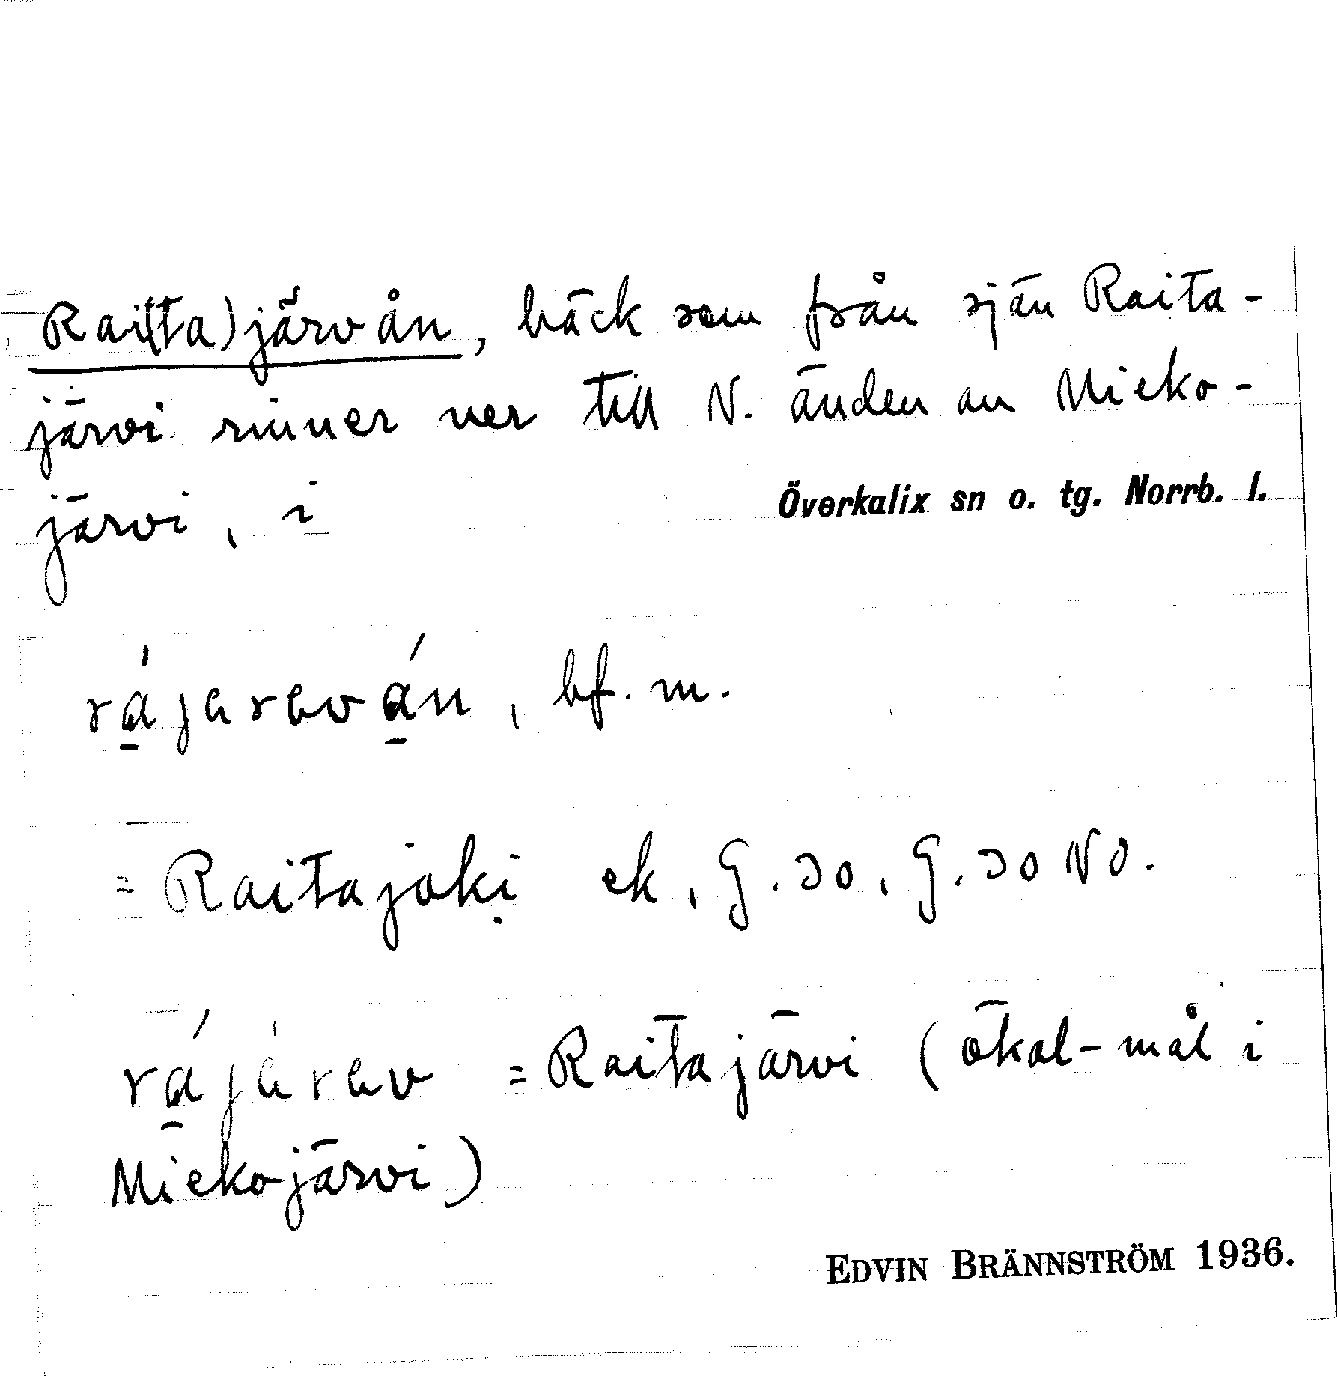 Rai(ta)järvån, bäck som från sjön Raita-
järvi rinner ner till N. änden av Mieko-
järvi, i Överkalix sn o. tg. Norrb. l.
rájareván, bf. m.
= Raitajoki ek, G. 30, G. 30 NO.
rájárev = Raitajärvi (ökal-mål i
Miekojärvi)
EDVIN BRÄNNSTRÖM 1936.